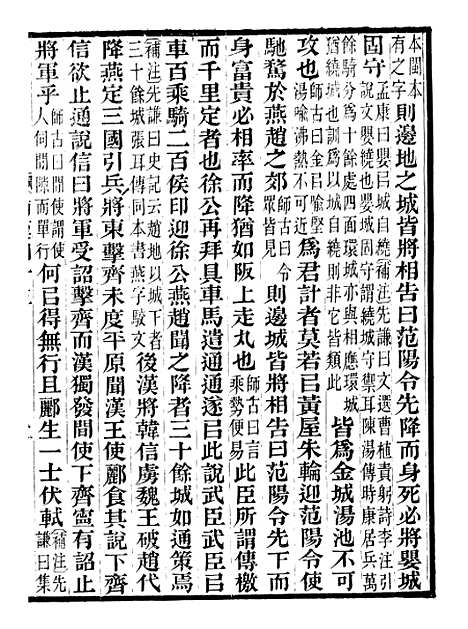 本閩本有之字則邊地之城皆將相告曰范陽令先降而身死必將嬰城
固守孟康曰嬰㠯城自繞補注先謙曰文選曹植責躬詩李注引說文嬰繞也嬰城固守謂繞城守禦耳陳湯傳時康居兵萬
餘騎分爲十餘處四面環城亦與相應環城猶繞城也訓爲以城自繞則非它皆類此皆爲金城湯池不可
攻也師古曰金㠯喻堅湯喻沸熱不可近爲君計者莫若㠯黃屋朱輪迎范陽令使
馳騖於燕趙之郊師古曰令眾皆見則邊城皆將相告曰范陽令先下而
身富貴必相率而降猶如阪上走丸也師古曰言乘勢便易此臣所謂傳檄
而千里定者也徐公再拜具車馬遣通通遂㠯此說武臣武臣㠯
車百乘騎二百侯印迎徐公燕趙聞之降者三十餘城如通策焉
補注先謙曰史記云趙地以城下者三十餘城張耳傳同本書燕字駮文後漢將韓信虜魏王破趙代
降燕定三國引兵將東擊齊未度平原聞漢王使酈食其說下齊
信欲止通說信曰將軍受詔擊齊而漢獨發間使下齊寧有詔止
將軍乎師古曰間使謂使人伺間隙而單行何㠯得無行且酈生一士伏軾補注先謙曰集